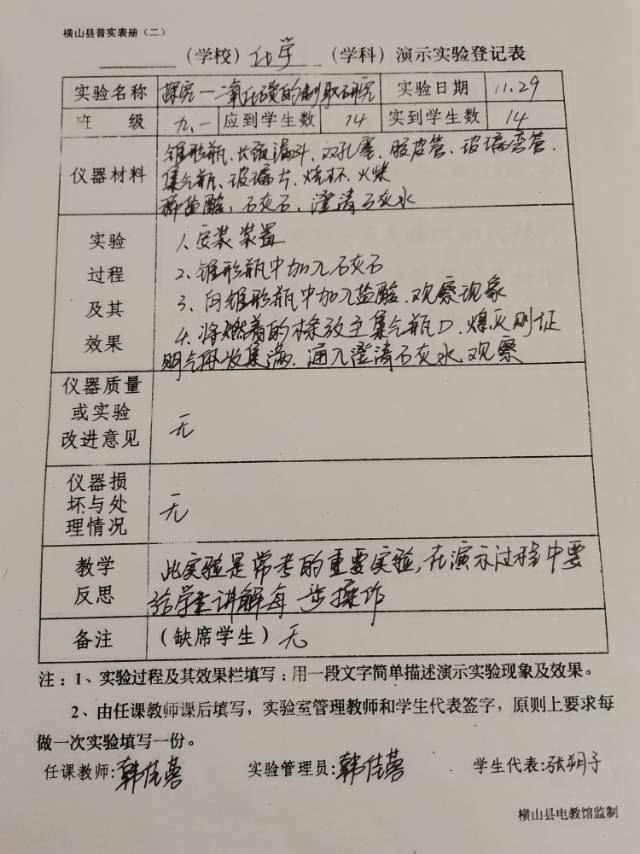 横山县普实表册（二）
（学校）化学（学科）演示实验登记表
实验名称 探究一二氧化碳的制取与研究 实验日期 11.29
班 级 九.一 应到学生数 14 实到学生数 14
仪器材料 锥形瓶、长颈漏斗、双孔塞、胶皮管、玻璃弯管、
集气瓶、玻璃片、烧杯、火柴
稀盐酸、石灰石、澄清石灰水
实验 1、安装装置
过程 2、锥形瓶中加入石灰石
及其 3、向锥形瓶中加入盐酸、观察现象
效果 4、将燃着的条放在集气瓶口、熄灭则证
明气体收集满、通入澄清石灰水、观察
仪器质量
或实验
改进意见 无
仪器损
坏与处
理情况 无
教学 此实验是常考的重要实验,在演示过程中要
反思 给学生讲解每一步操作
备注 （缺席学生）无
注：1、实验过程及其效果栏填写：用一段文字简单描述演示实验现象及效果。
2、由任课教师课后填写，实验室管理教师和学生代表签字，原则上要求每
做一次实验填写一份。
任课教师：韩佳蓉 实验管理员：韩佳蓉 学生代表：张朔子
横山县电教馆监制